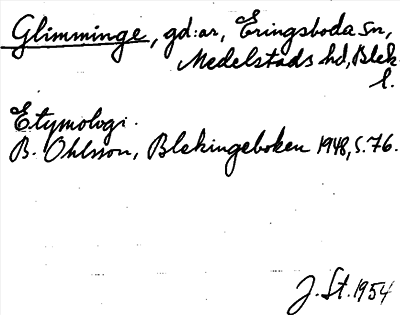 Glimminge, gd:ar, Eringsboda sn,
Medelstads hd, Blek.
l.
Etymologi.
B. Ohlsson, Blekingeboken 1948, s. 76.
J. St. 1954